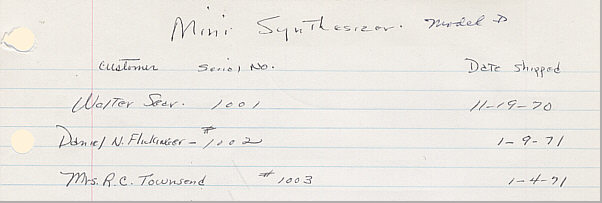 Mini Synthesizer. Model D
Customer Serial No. Date Shipped
Walter Sear. 1001 11-19-70
Daniel N. Flukinger - #1002 1-9-71
Mrs. R.C. Townsend #1003 1-4-71